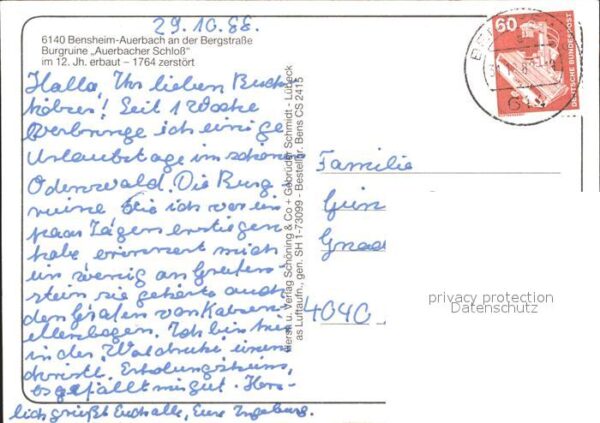 29.10.88.
6140 Bensheim-Auerbach an der Bergstraße
Burgruine „Auerbacher Schloß"
im 12. Jh. erbaut – 1764 zerstört
Hallo, Ihr lieben Buch-
hölzer! Seit 1 Woche
verbringe ich einige
Urlaubstage im schönen
Odenwald. Die Burg-
ruine die ich vor ein
paar Tagen erstiegen
habe erinnert mich
ein wenig an Greifen-
stein sie gehörte auch
den Grafen von Katzen-
ellenbogen. Ich bin hier
in der Waldruhe einem
christl. Erholungsheim,
es gefällt mir gut. Herz-
lich grüßt Euch alle, Eure Ingeburg.
Herst. u. Verlag Schöning & Co + Gebrüder Schmidt - Lübeck
as Luftaufn., gen. SH 1-73099 - Bestellnr. Bens CS 2415
60
DEUTSCHE BUNDESPOST
Familie
Gün
Gnad
4040
privacy protection
Datenschutz